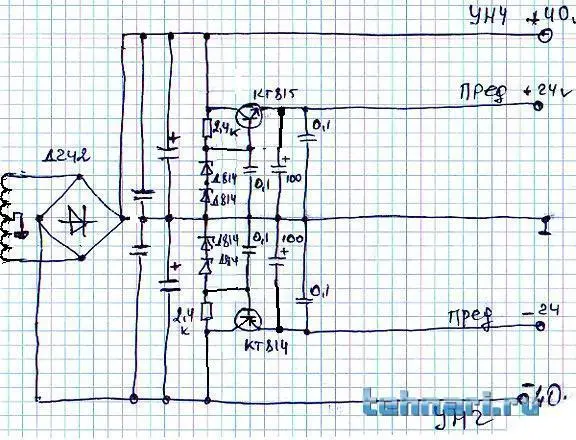 УНЧ +40.
КТ815
ПРЕД +24v
Д242
2,4к
0,1
Д814
Д814
0,1
+
100
+
Д814
Д814
0,1
+
100
+
0,1
2,4
к
КТ814
ПРЕД -24
-40.
tehnari.ru
УНЧ